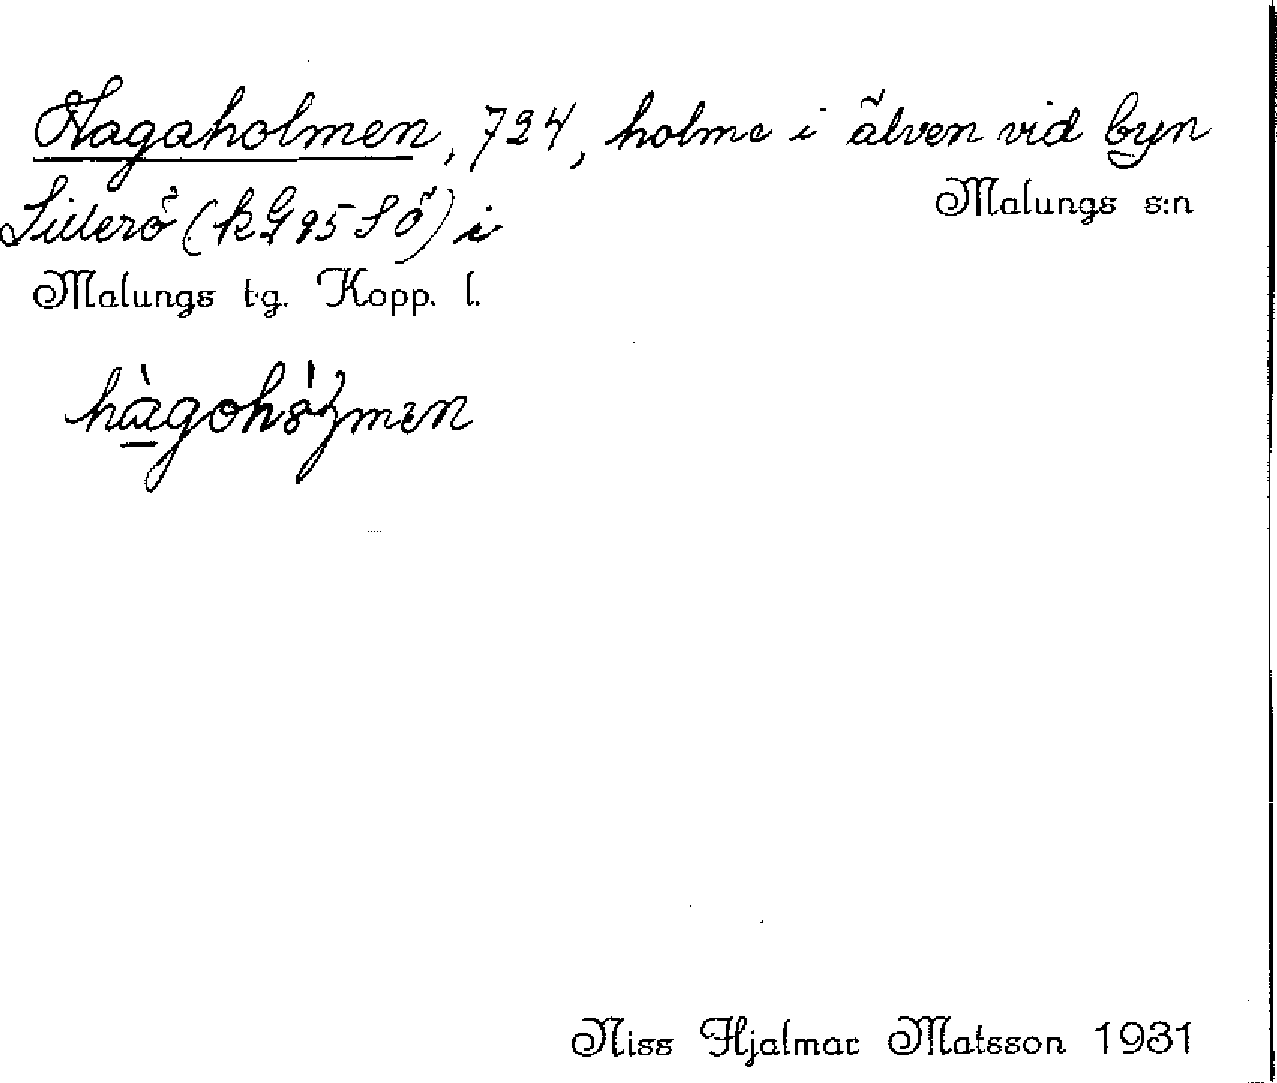 Hagaholmen, 724, holme i älven vid byn
Sillerö (kG 95 SÖ) i
Malungs s:n
Malungs tg. Kopp. l.
Niss Hjalmar Matsson 1931